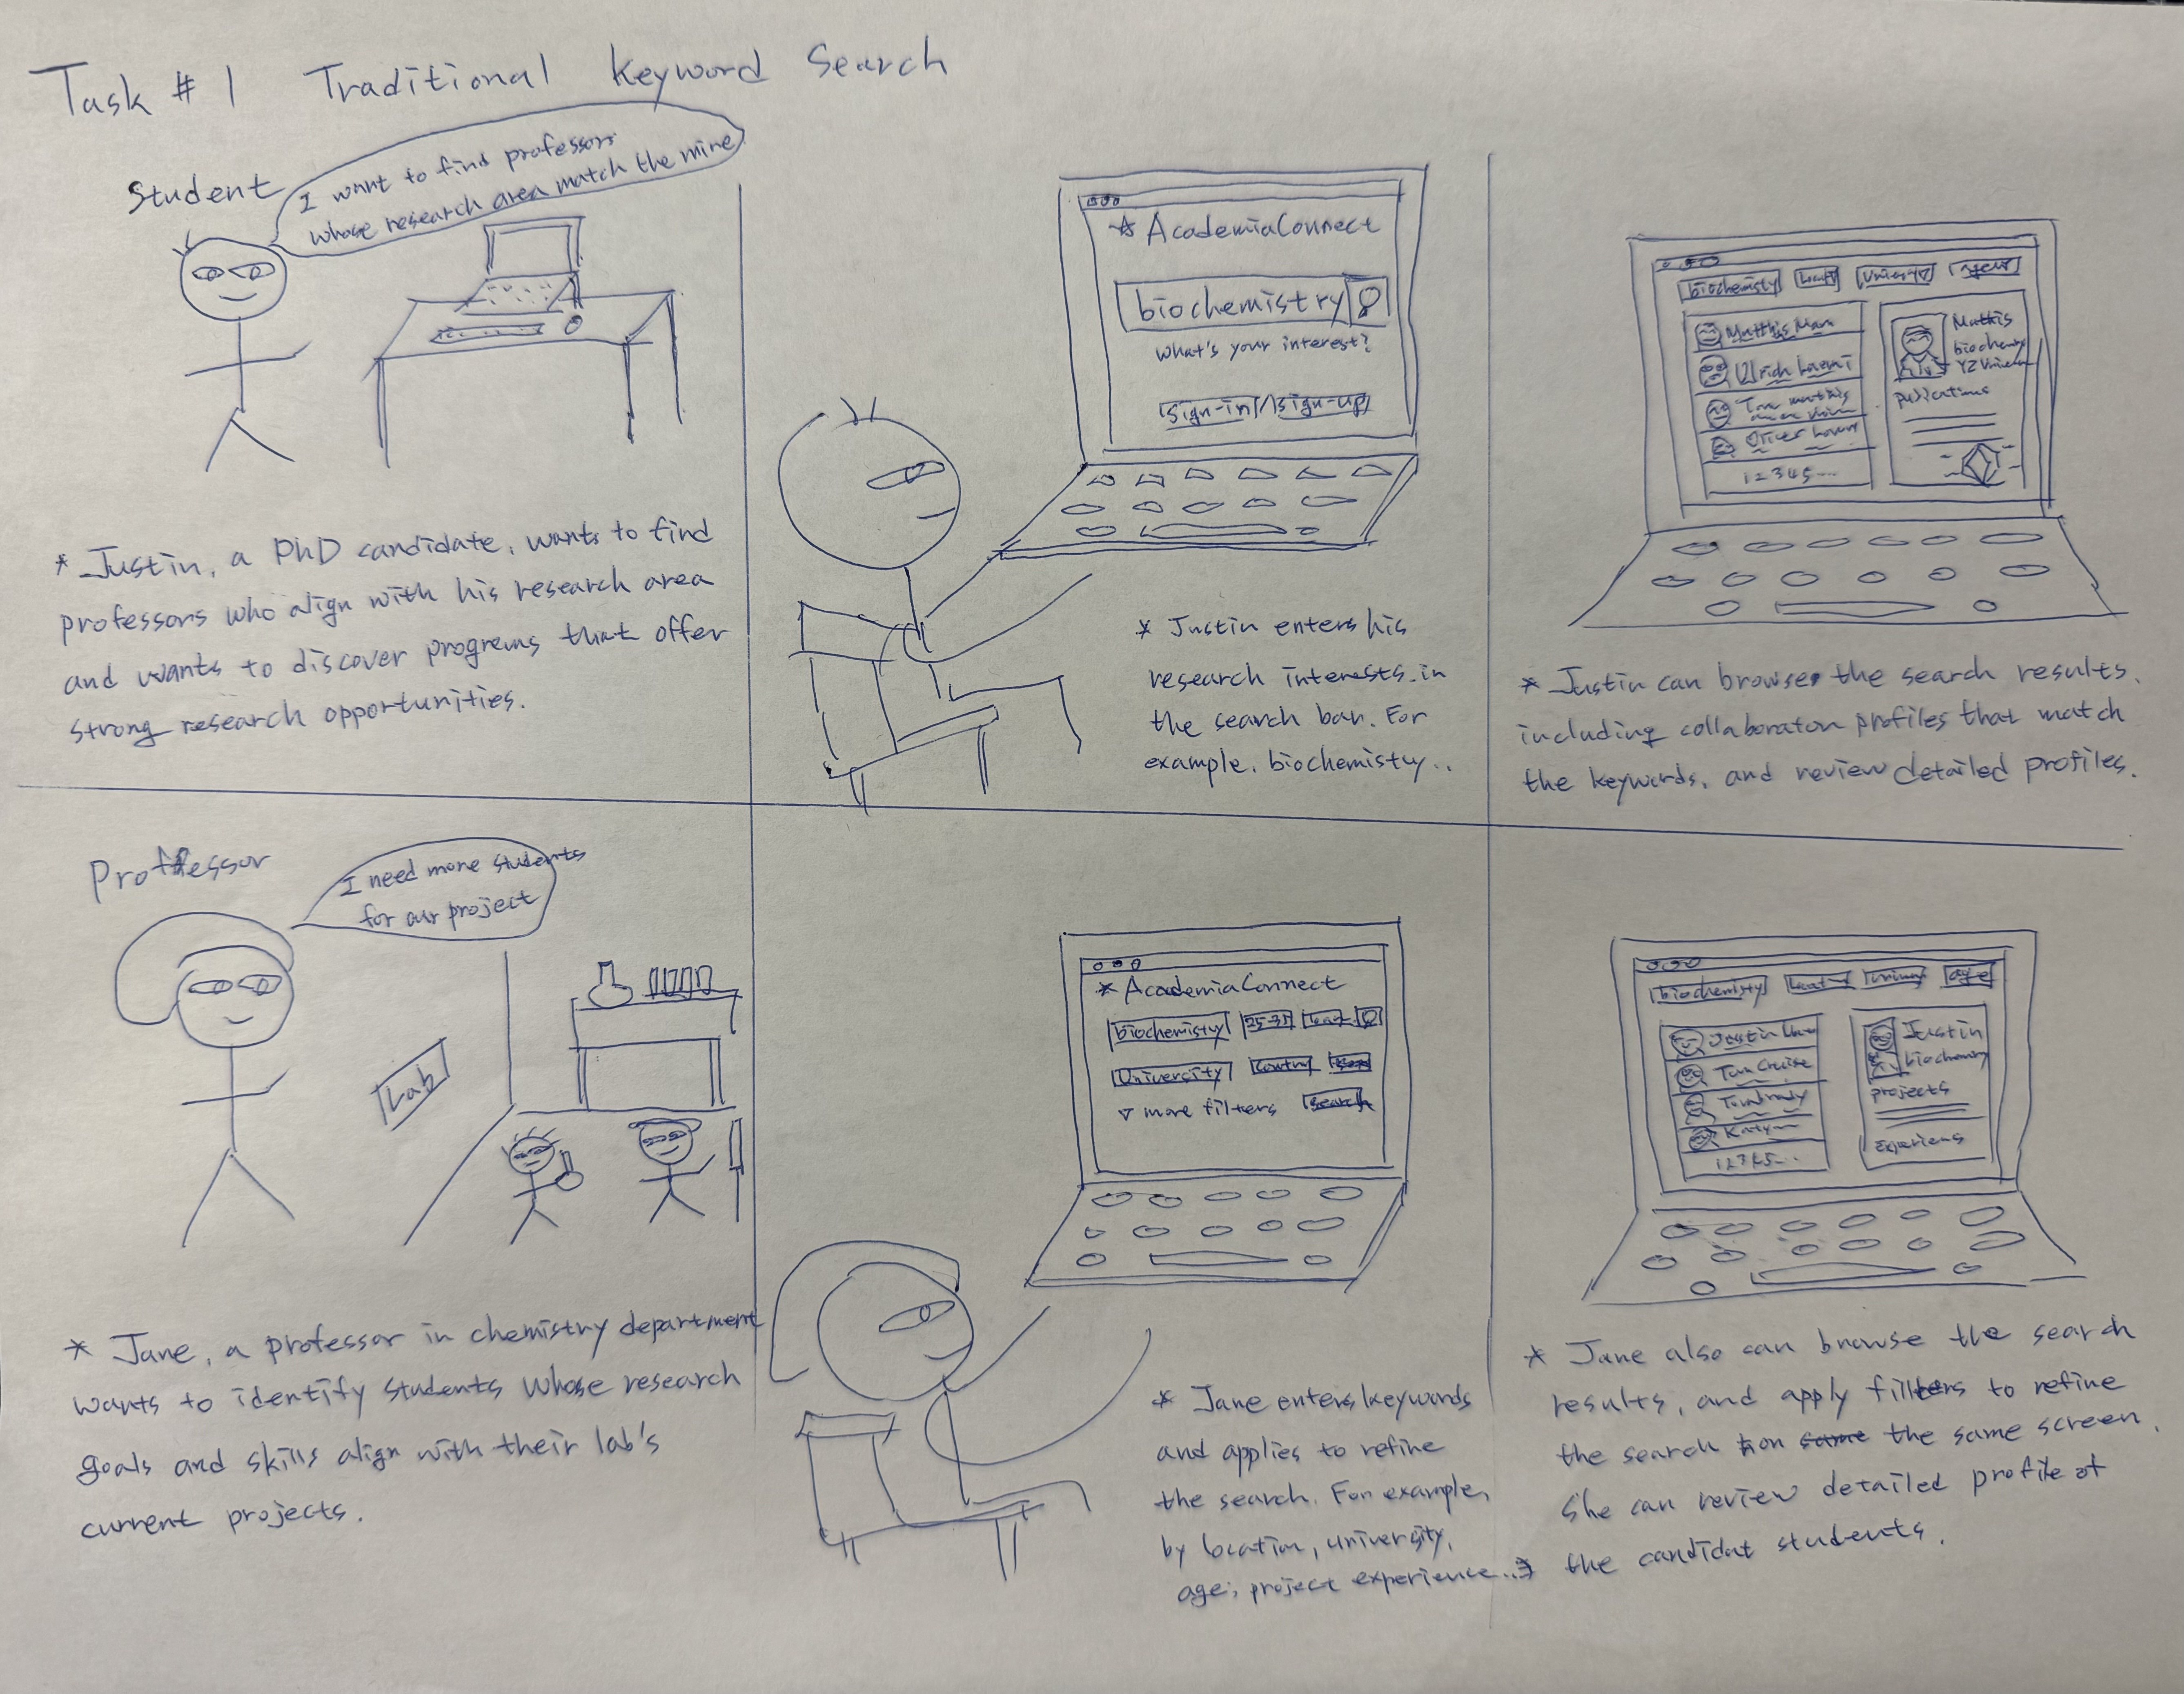 Task # 1 Traditional Keyword Search
Student
I want to find professors
whose research area match the mine
* Justin, a PhD candidate, wants to find
professors who align with his research area
and wants to discover programs that offer
strong research opportunities.
* AcademiaConnect
biochemistry
what's your interest?
sign-in / sign-up
* Justin enters his
research interests in
the search bar. For
example, biochemistry..
biochemisty
Matthis
Ulrich
Oliver
12345...
Mathis
biochem
YZ
publications
* Justin can browse the search results,
including collaborator profiles that match
the keywords, and review detailed profiles.
Proffessor
I need more students
for our project
Lab
* Jane, a professor in chemistry department
wants to identify students whose research
goals and skills align with their lab's
current projects.
* AcademiaConnect
biochemistry 25-35
University
▽ more filters search
* Jane enters keywords
and applies to refine
the search. For example,
by location, university,
age, project experience...
biochemisty age
Justin
Tom Cruise
Katy
12345...
Justin
projects
* Jane also can browse the search
results, and apply fillters to refine
the search on same the same screen.
She can review detailed profile of
the candidat students.